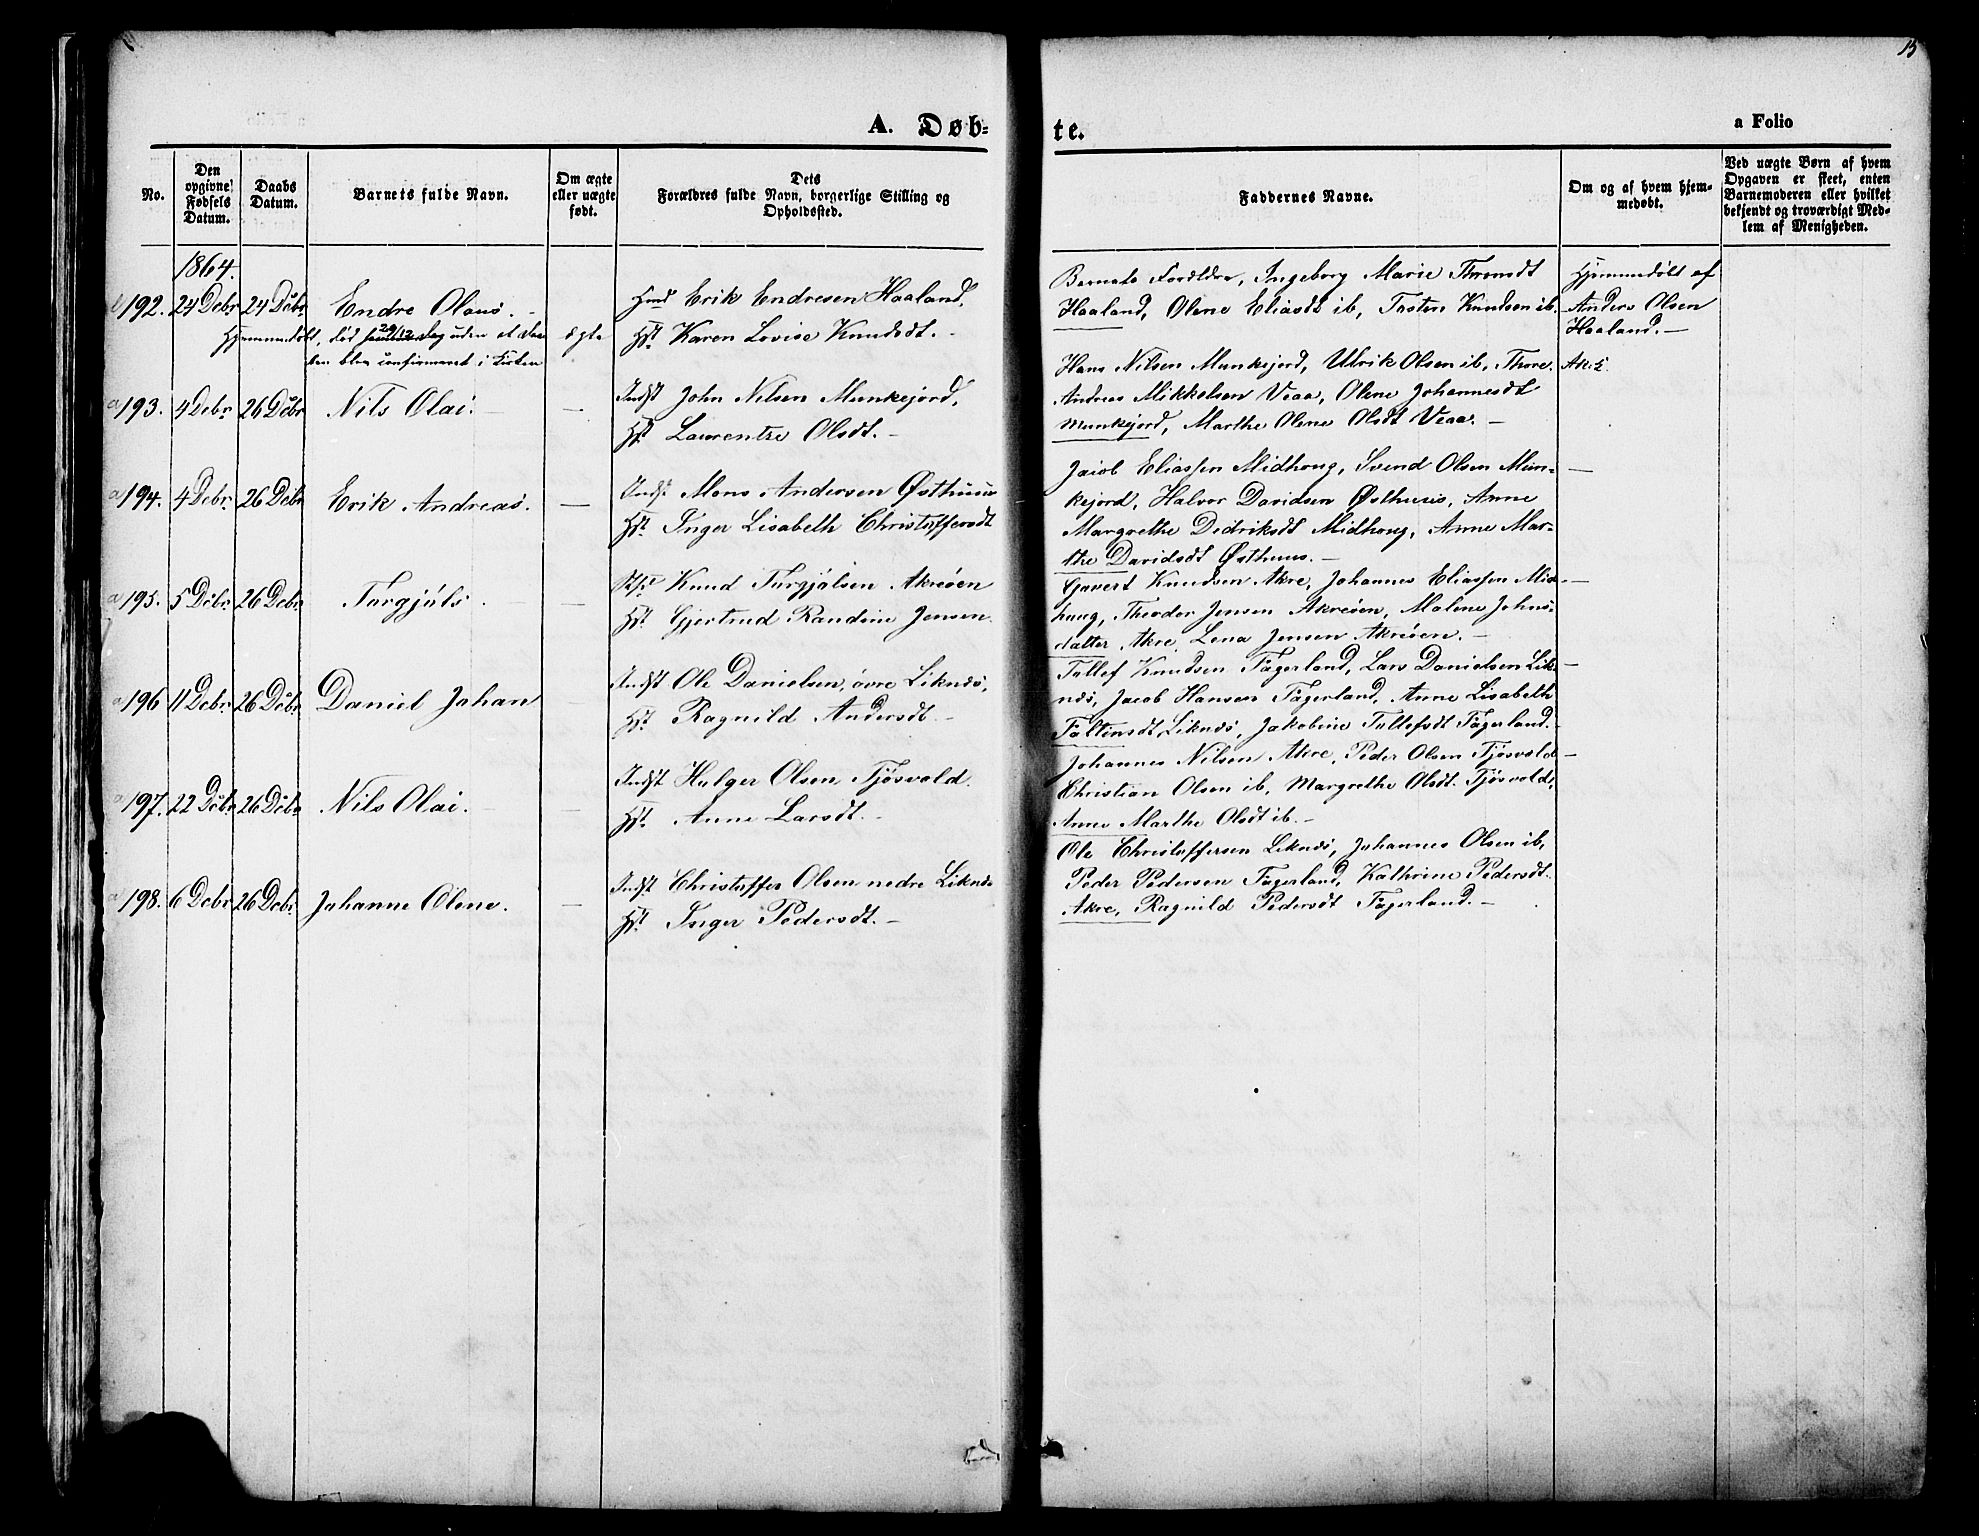 15
A. Døb-
te.
a Folio
No.
Den opgivne Fødsels Datum.
Daabs Datum.
Barnets fulde Navn.
Om ægte eller uægte født.
Dets Forældres fulde Navn, borgerlige Stilling og Opholdssted.
Faddernes Navne.
Om og af hvem hjem-
medøbt.
Ved uægte Børn af hvem
Opgaven er skeet, enten
Barnemoderen eller hvilket
bekjendt og troværdigt Med-
lem af Menigheden.
1864.
192. 24 Debr 24 Debr Endre Olaus.
Hjemmedøbt, død 29/12 uden at Daa-
ben blev confirmeret i Kirken
ægte
Erik Endresen Haaland,
Hst. Karen Lovise Knudsdt.
Barnets Forældre, Ingeborg Marie Thronsdt
Haaland, Olene Eliasdt ib, Tosten Knudsen ib.
Hjemmedøbt af
Anders Olsen
Haaland.
a 193. 4 Debr. 26 Debr Nils Olai. —
Indst John Nilsen Munkejord,
Hst. Lawrentze Olsdt. —
Hans Nilsen Munkejord, Ulrik Olsen ib, Thore
Andreas Mikkelsen Veaa, Olene Johannesdt
Munkejord, Marthe Olene Olsdt Veaa. —
a 194. 4 Debr. 26 Debr Erik Andreas. —
Indst. Mons Andersen Østhuus
Hst. Inger Lisabeth Christoffersdt
Jacob Eliassen Midhoug, Svend Olsen Mun- —
kejord, Halvor Davidsen Østhuus, Anne
Margrethe Didriksdt Midhoug, Anne Mar-
the Davidsdt Østhuus. —
a 195. 5 Debr. 26 Debr Torgjüls. —
Knud Torgjülsen Akreøen
Hst. Gjertrud Randine Jensen.
Govert Knudsen Akre, Johannes Eliassen Mid- —
houg, Theodor Jensen Akreøen, Malene Johns-
datter Akre, Lena Jensen Akreøen. —
a 196 11 Debr. 26 Debr. Daniel Johan —
Indst Ole Danielsen øvre Liknes,
Hst. Ragnild Andersdt. —
Tollef Knudsen Fagerland, Lars Danielsen Lik- —
nes, Jacob Hansen Fagerland, Anne Lisabeth
Faltinsdt Liknes, Jakobine Tollefsdt Fagerland.
a 197. 22 Debr 26 Debr. Nils Olai. —
Indst Holger Olsen Tjøsvold.
Hst. Anne Larsdt. —
Johannes Nilsen Akre, Peder Olsen Tjøsvold —
Christian Olsen ib, Margrethe Olsdt. Tjøsvold,
Anne Marthe Olsdt ib. —
a 198. 6 Debr 26 Debr. Johanne Olene. —
Indst Christoffer Olsen nedre Liknes
Hst. Inger Pedersdt. —
Ole Christoffersen Liknes, Johannes Olsen ib,
Peder Pedersen Fagerland, Kathrine Pedersdt.
Akre, Ragnild Pedersdt Fagerland. —